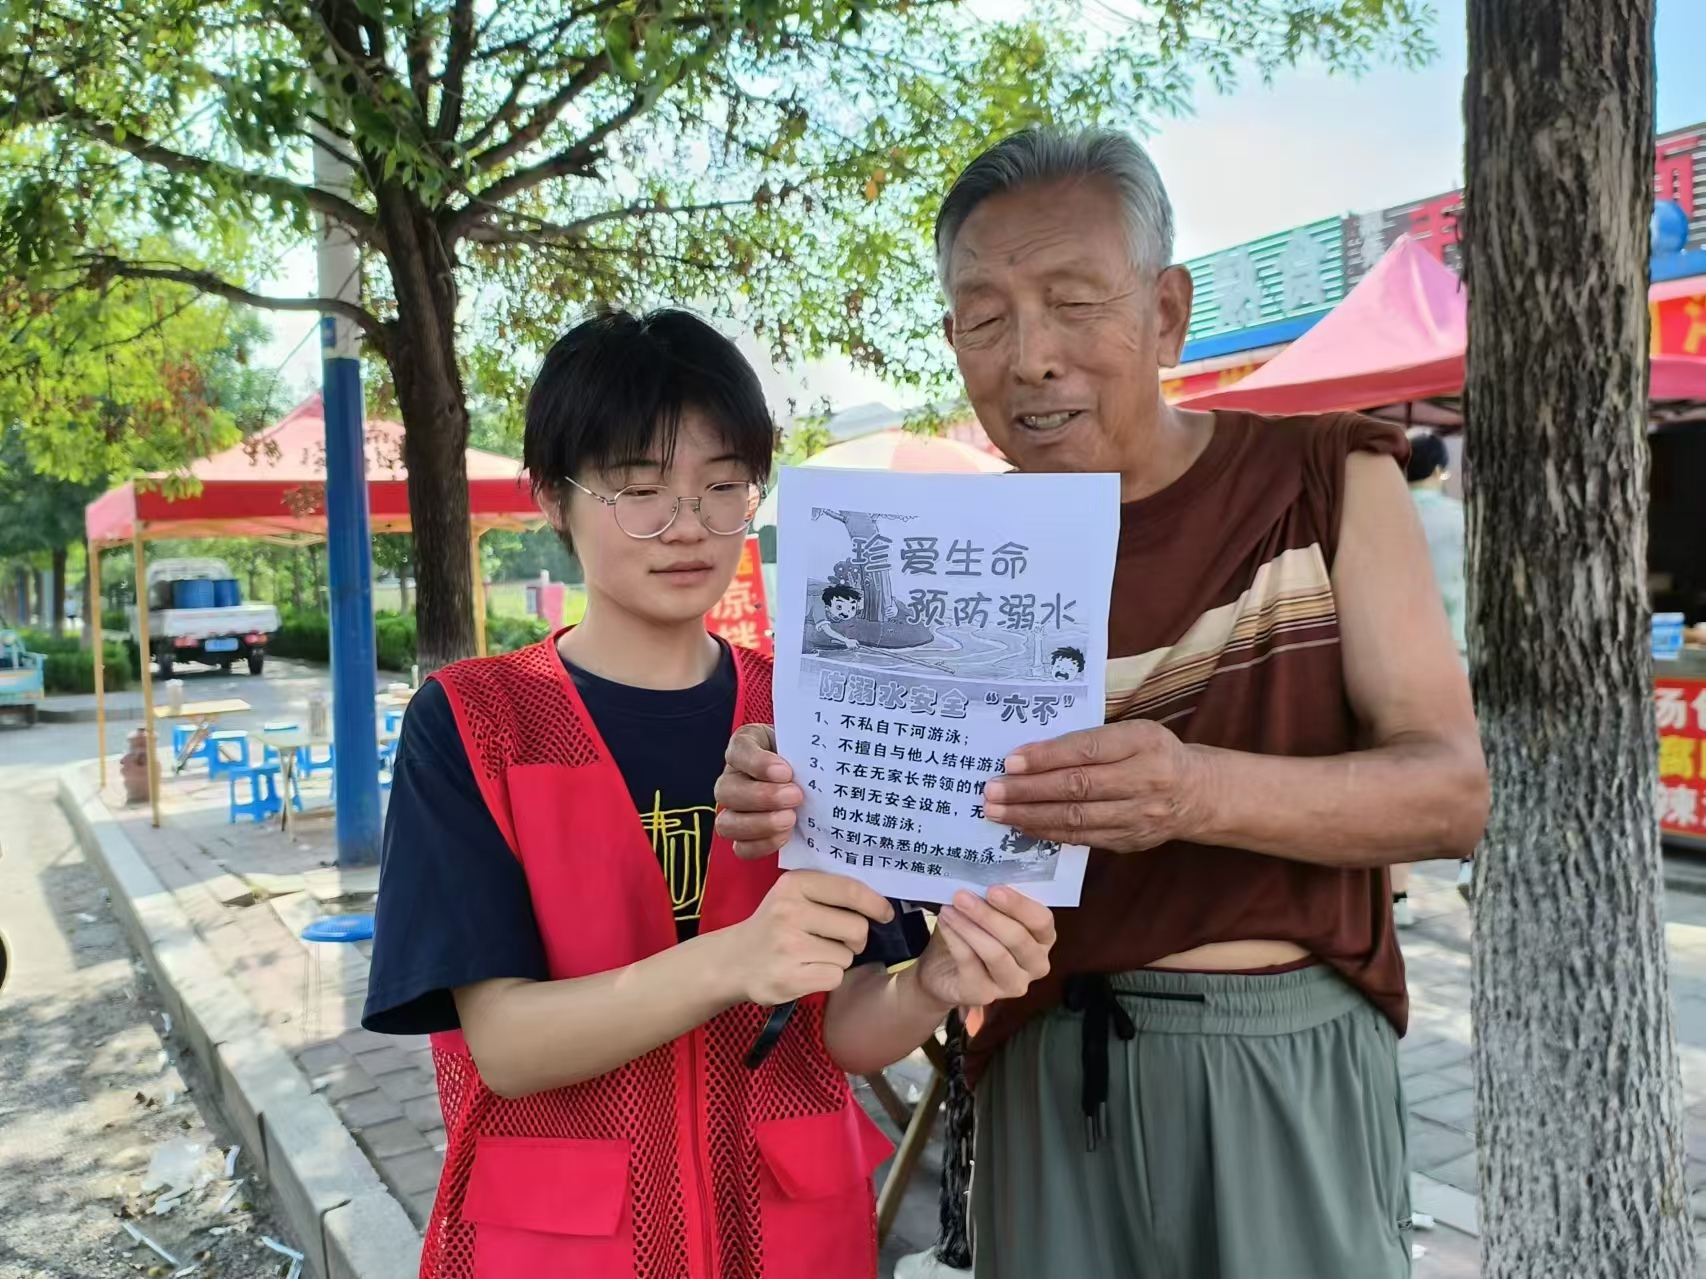 珍爱生命
预防溺水
防溺水安全“六不”
1、不私自下河游泳；
2、不擅自与他人结伴游泳
3、不在无家长带领的情
4、不到无安全设施，无
的水域游泳；
5、不到不熟悉的水域游泳；
6、不盲目下水施救。